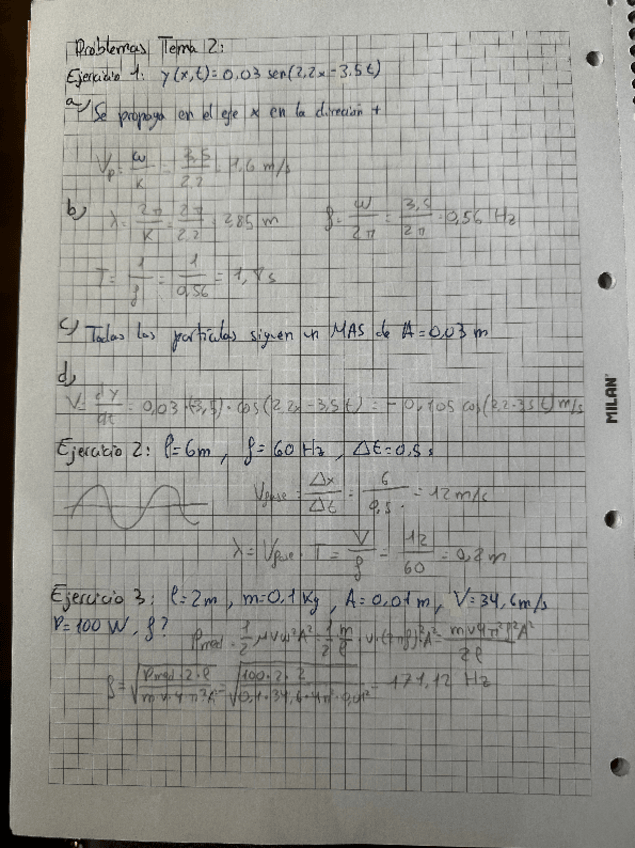 Problemas Tema 2:
Ejercicio 1: y(x,t)=0,03 sen(2,2x-3,5t)
a) Se propaga en el eje x en la direcion +
Vp = ω/K = 3,5/2,2 = 1,6 m/s
b) λ = 2π/K = 2π/2,2 = 2,85 m f = ω/2π = 3,5/2π = 0,56 Hz
T = 1/f = 1/0,56 = 1,8 s
c) Todas las particulas siguen un MAS de A=0,03 m
d)
V = dy/dt = 0,03·(-3,5)·cos(2,2x-3,5t) = -0,105 cos(2,2-3,5t) m/s
Ejercicio 2: l=6m, f=60 Hz, Δt=0,5 s
Vfase = Δx/Δt = 6/0,5 = 12 m/s
λ = Vfase · T = V/f = 12/60 = 0,2 m
Ejercicio 3: l=2m, m=0,1 Kg, A=0,01 m, V=34,6 m/s
P=100 W, f? Pmed = 1/2 μvω²A² = 1/2 m/l · v·(2πf)²A² = mv4π²f²A²/2l
f = √(Pmed·2·l/m·v·4π²A²) = √(100·2·2/0,1·34,6·4π²·0,01²) = 171,12 Hz
MILAN